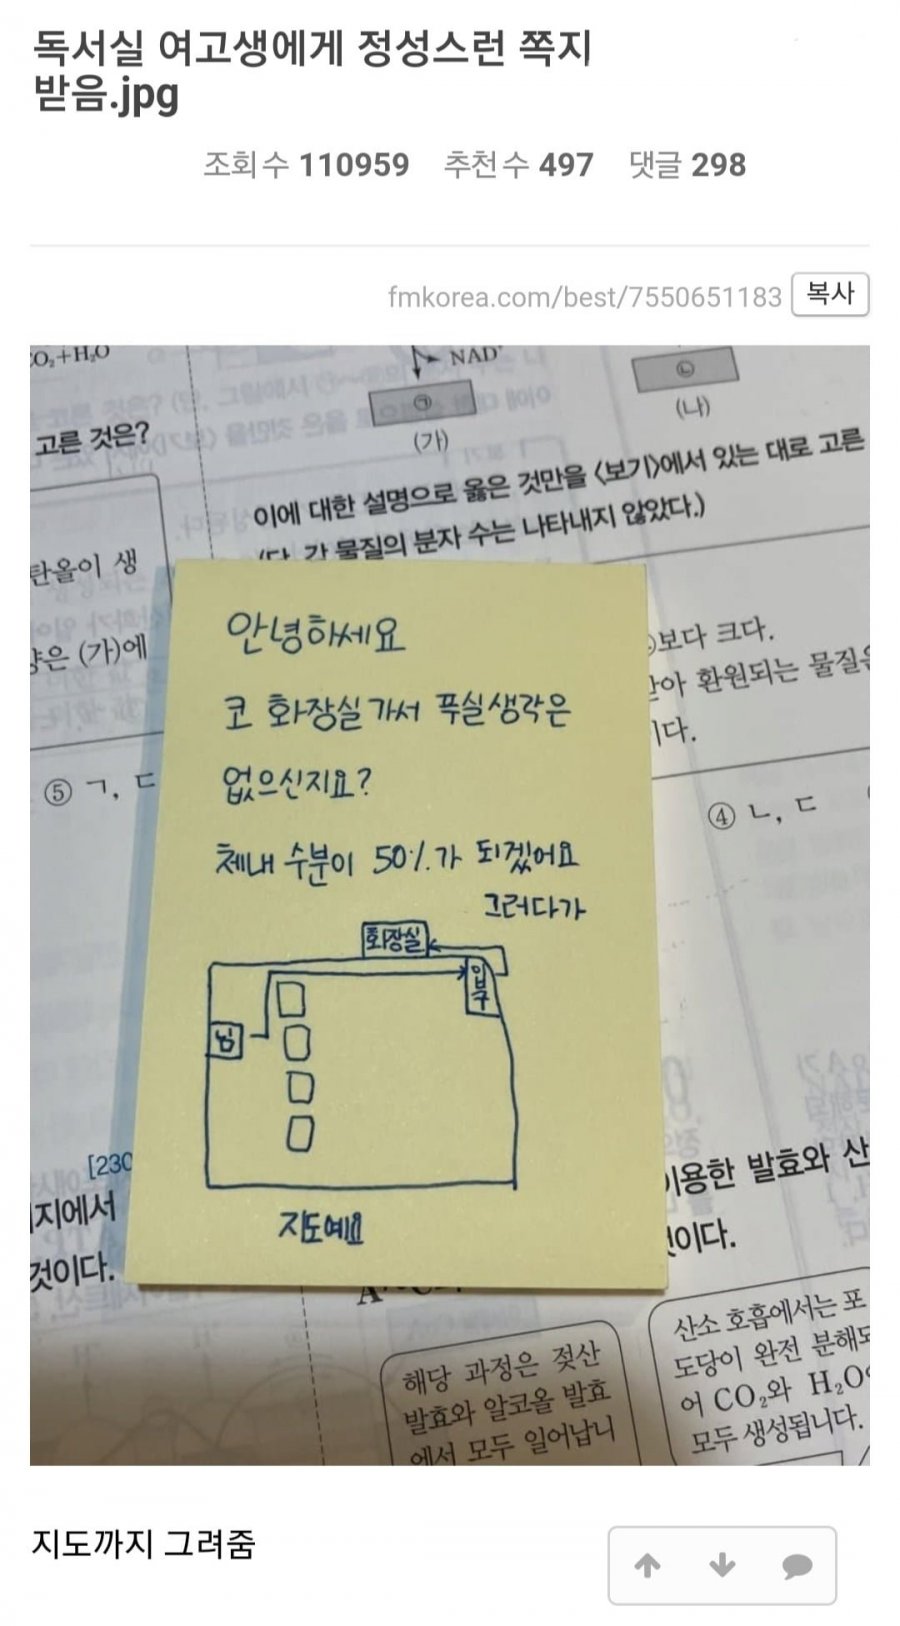 독서실 여고생에게 정성스런 쪽지
받음.jpg
조회 수 110959 추천 수 497 댓글 298
fmkorea.com/best/7550651183 복사
O₂+H₂O
NAD⁺
㉠
㉡
(가)
(나)
고른 것은?
이에 대한 설명으로 옳은 것만을 <보기>에서 있는 대로 고른
(단, 각 물질의 분자 수는 나타내지 않았다.)
탄올이 생
은 (가)에
보다 크다.
아 환원되는 물질은
이다.
⑤ ㄱ, ㄷ
④ ㄴ, ㄷ
안녕하세요
코 화장실가서 푸실생각은
없으신지요?
체내 수분이 50%가 되겠어요
그러다가
화장실
입구
님
지도예요
[230
지에서
것이다.
이용한 발효와 산
것이다.
해당 과정은 젖산
발효와 알코올 발효
에서 모두 일어납니
산소 호흡에서는 포
도당이 완전 분해되
어 CO₂와 H₂O
모두 생성됩니다.
지도까지 그려줌